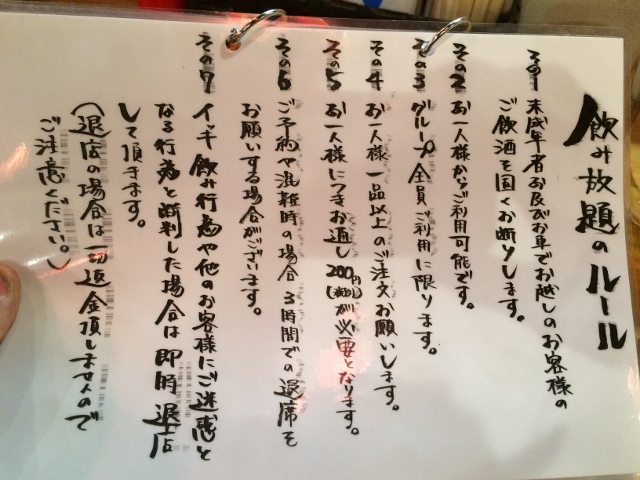 飲み放題のルール
その1 未成年者お及びお車でお越しのお客様の
ご飲酒を固くお断りします。
その2 お一人様からご利用可能です。
その3 グループ全員ご利用に限ります。
その4 お一人様一品以上のご注文お願いします。
その5 お一人様につきお通し200円(税別)が必要となります。
その6 ご予約や混雑時の場合3時間での退席を
お願いする場合がございます。
その7 イッキ飲み行為や他のお客様にご迷惑と
なる行為と断判した場合は即時退店
して頂きます。
(退店の場合は一切返金頂しませんので
ご注意ください。)